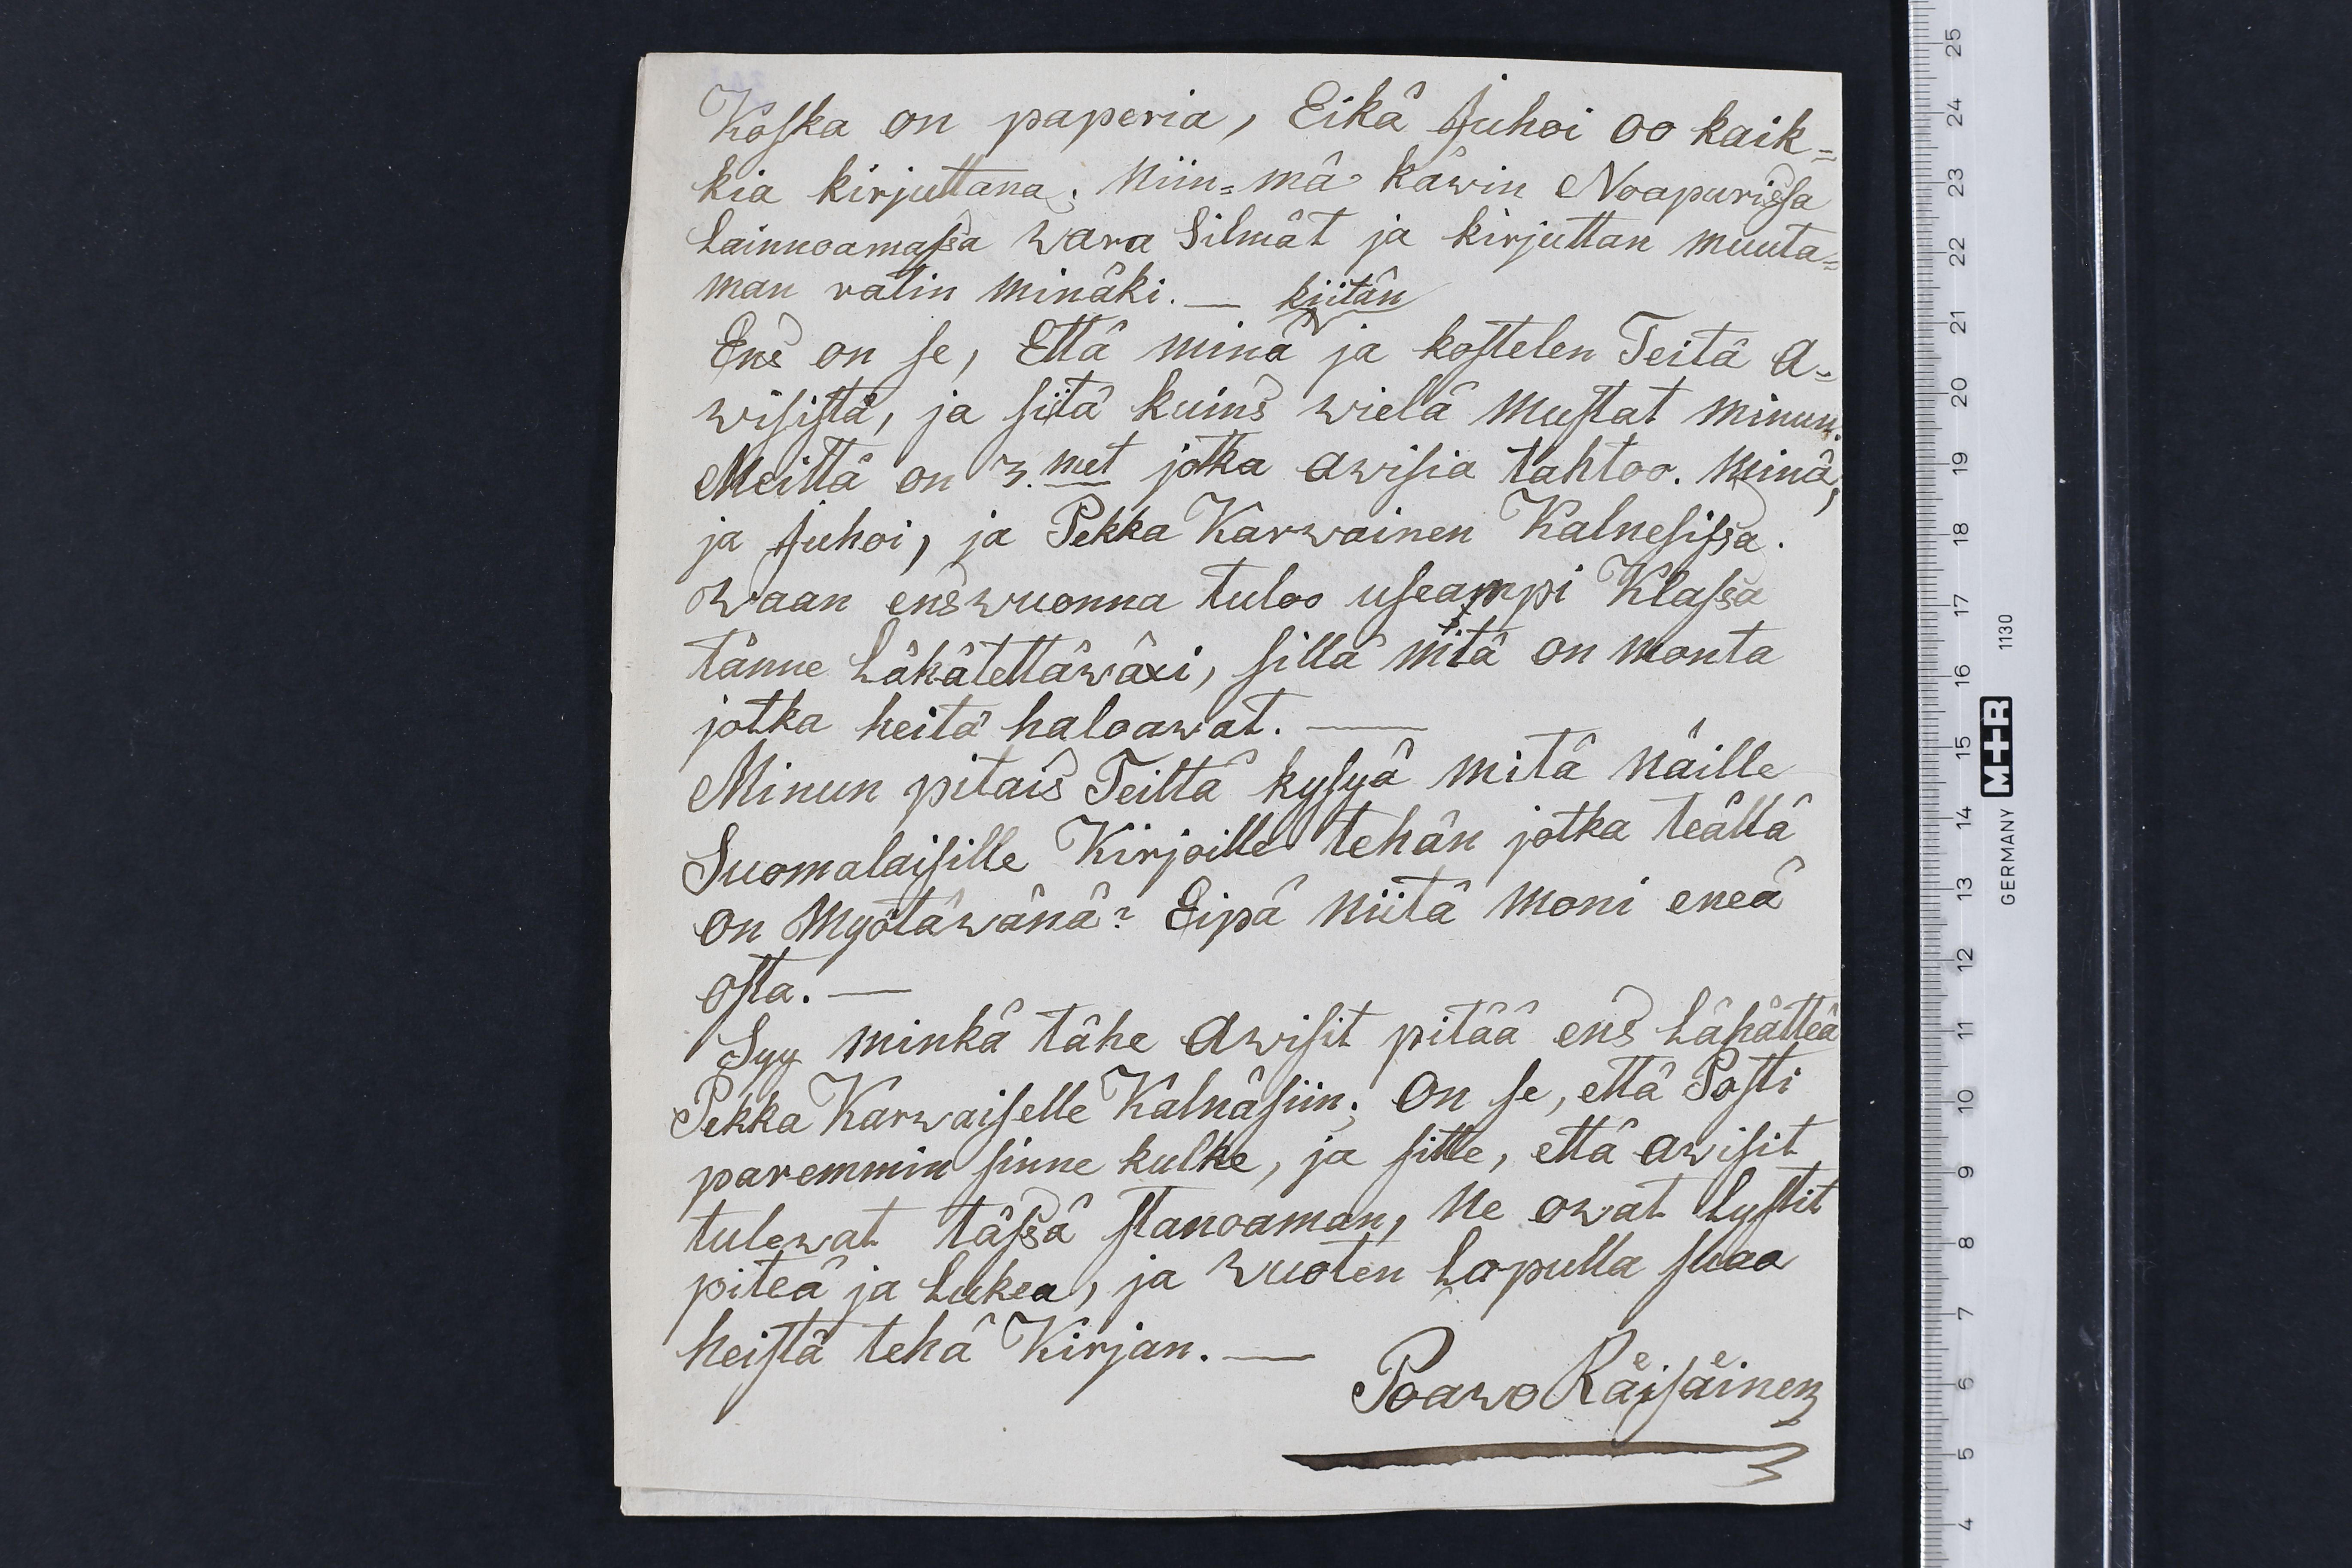 Koska on paperia, Eikä Juhoi oo kaik=
kia kirjuttana; Niin=mä käwin Noapurissa
Lainnoamassa wara Silmät ja kirjuttan muuta=
man ratin minäki. — kiitän
Ens on se, Että minä ja kostelen Teitä A=
wisista, ja siitä kuins wielä mustat minun.
Meittä on 3. met jotka awisia tahtoo. Minä,
ja Juhoi, ja Pekka Karwainen Kalnesissa.
Waan enswuonna tuloo useampi Klassa
tänne Läkätettäwäxi, sillä niitä on monta
jotka heitä haloawat. —
Minun pitäis Teiltä kysyä mitä näille
Suomalaisille Kirjoille tehän jotka teällä
on Myötäwänä? Eipä niitä moni eneä
osta. —
Syy minkä tähe Awisit pitää ens Lähätteä
Pekka Karwaiselle Kalnäsiin; On se, että Posti
paremmin sinne kulke, ja sitte, että awisit
tulewat tässä stanoaman, Ne owat Lystit
piteä ja Lukea, ja wuoten Lopulla suaa
heistä tehä Kirjan. —
Poawo Räisäinen
25
24
23
22
21
20
19
18
17
16
15
14
13
12
11
10
9
8
7
6
5
4
1130
M+R
GERMANY